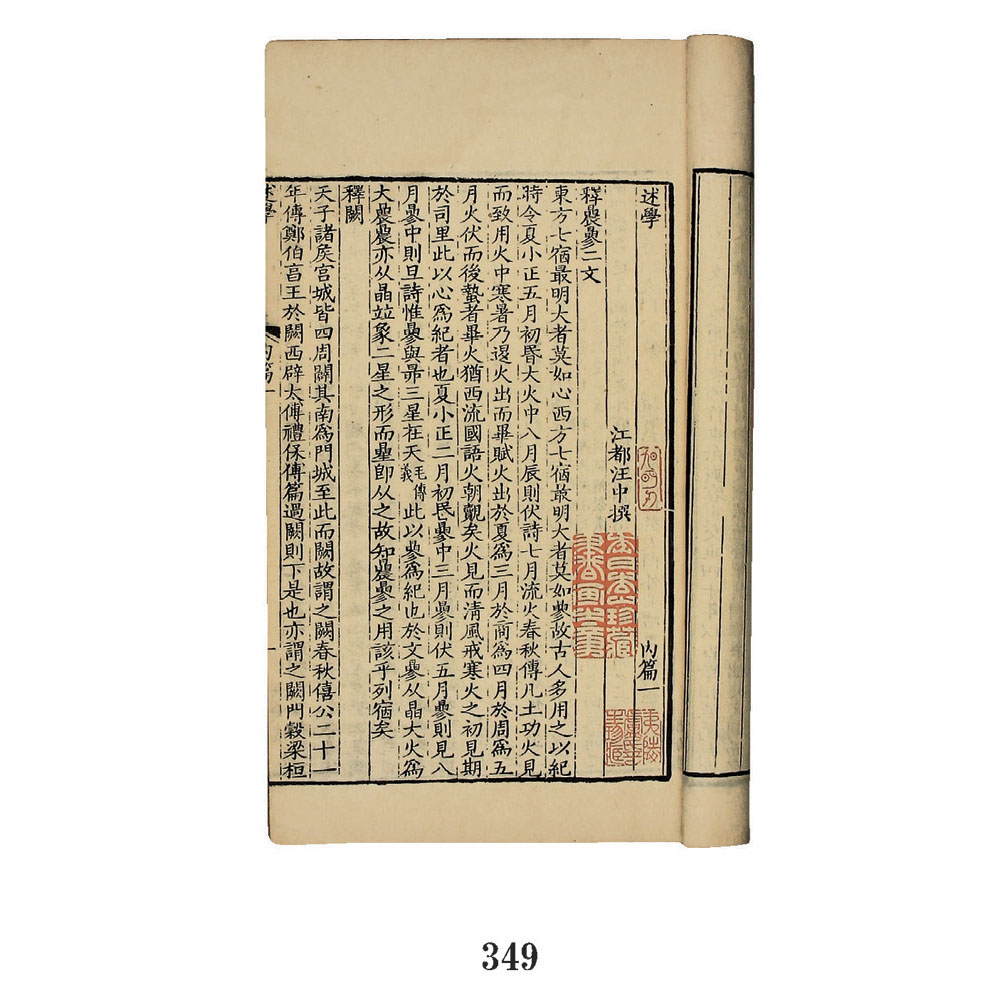 述學 內篇一
江都汪中撰
釋曟曑二文
東方七宿最明大者莫如心西方七宿最明大者莫如曑故古人多用之以紀
時令夏小正五月初昏大火中八月辰則伏詩七月流火春秋傳凡土功火見
而致用火中寒暑乃退火出而畢賦火出於夏爲三月於商爲四月於周爲五
月火伏而後蟄者畢火猶西流國語火朝覿矣火見而淸風戒寒火之初見期
於司里此以心爲紀者也夏小正二月初昬曑中三月曑則伏五月曑則見八
月曑中則旦詩惟曑與昴三星在天毛傳義此以曑爲紀也於文曑从晶大火爲
大曟曟亦从晶竝象二星之形而曐卽从之故知曟曑之用該乎列宿矣
釋闕
天子諸矦宮城皆四周闕其南爲門城至此而闕故謂之闕春秋僖公二十一
年傳鄭伯亯王於闕西辟大傅禮保傅篇過闕則下是也亦謂之闕門穀梁桓
述學 內篇一 一
349